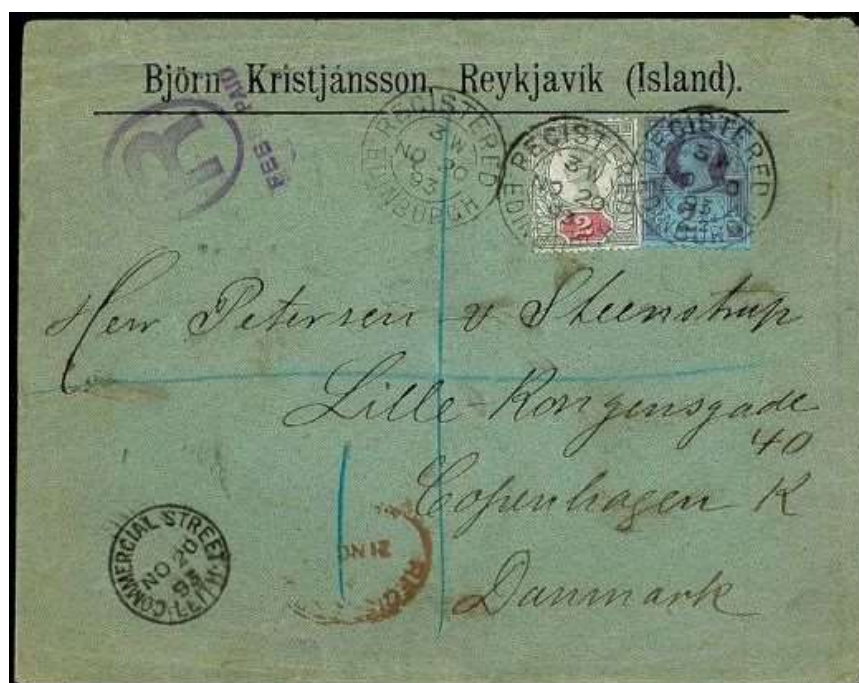 Björn Kristjánsson, Reykjavík (Island).
R
FEE PAID
REGISTERED
3 W
NO 20
93
EDINBURGH
REGISTERED
3 W
NO 20
93
2
REGISTERED
3 W
93
Herr Petersen & Steenstrup
Lille-Kongensgade
40
Copenhagen K
Danmark
COMMERCIAL STREET
NO 20
93
LEITH
21 NO